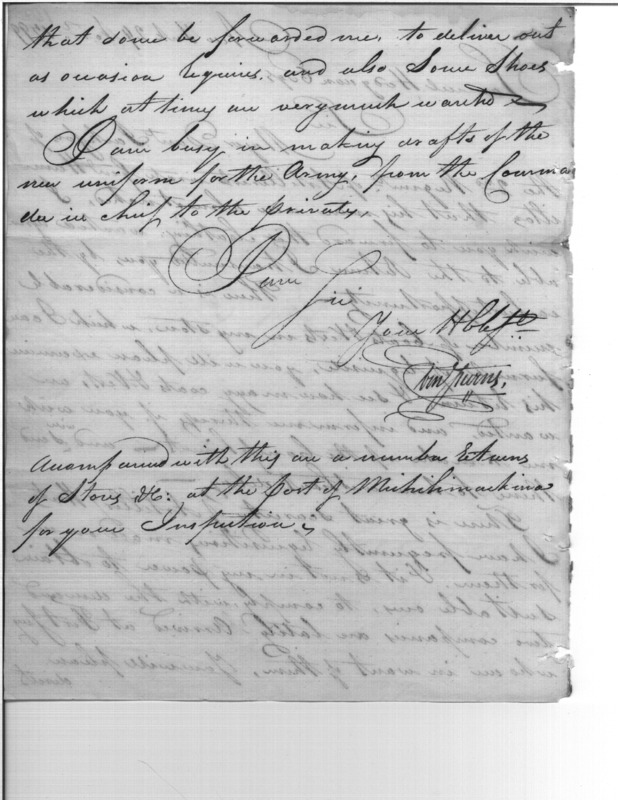 that some be forwarded me, to deliver out
as occasion requires, and also Some Shoes
which at times are very much wanted
I am busy in making drafts of the
new uniform for the Army, from the Comman
der in chief to the private,
I am
Sir
Your Hble St
Accompanied with this are a number Returns
of Stores &c: at the Post of Michilimackina
for your Inspection,